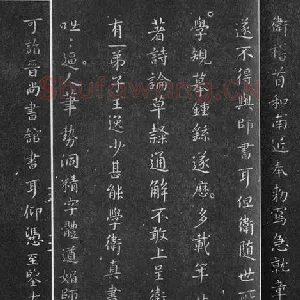 衛稽首和南近奉勅寫急就章
遂不得與師書耳但衛隨世所
學規摹鍾繇遂歷多載年
著詩論草隸通解不敢上呈衛
有一弟子王逸少甚能學衛真書
咄〻逼人筆勢洞精字體遒媚師
可詣晉尚書館書耳仰憑至鑒大
Shufawang.CN